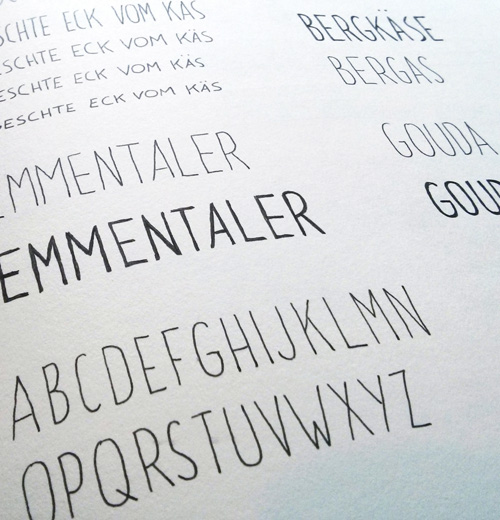 SCHTE ECK VOM KÄS
ESCHTE ECK VOM KÄS
ESCHTE ECK VOM KÄS
BESCHTE ECK VOM KÄS
EMMENTALER
EMMENTALER
BERGKÄSE
BERGAS
GOUDA
GOUD
ABCDEFGHIJKLMN
OPQRSTUVWXYZ